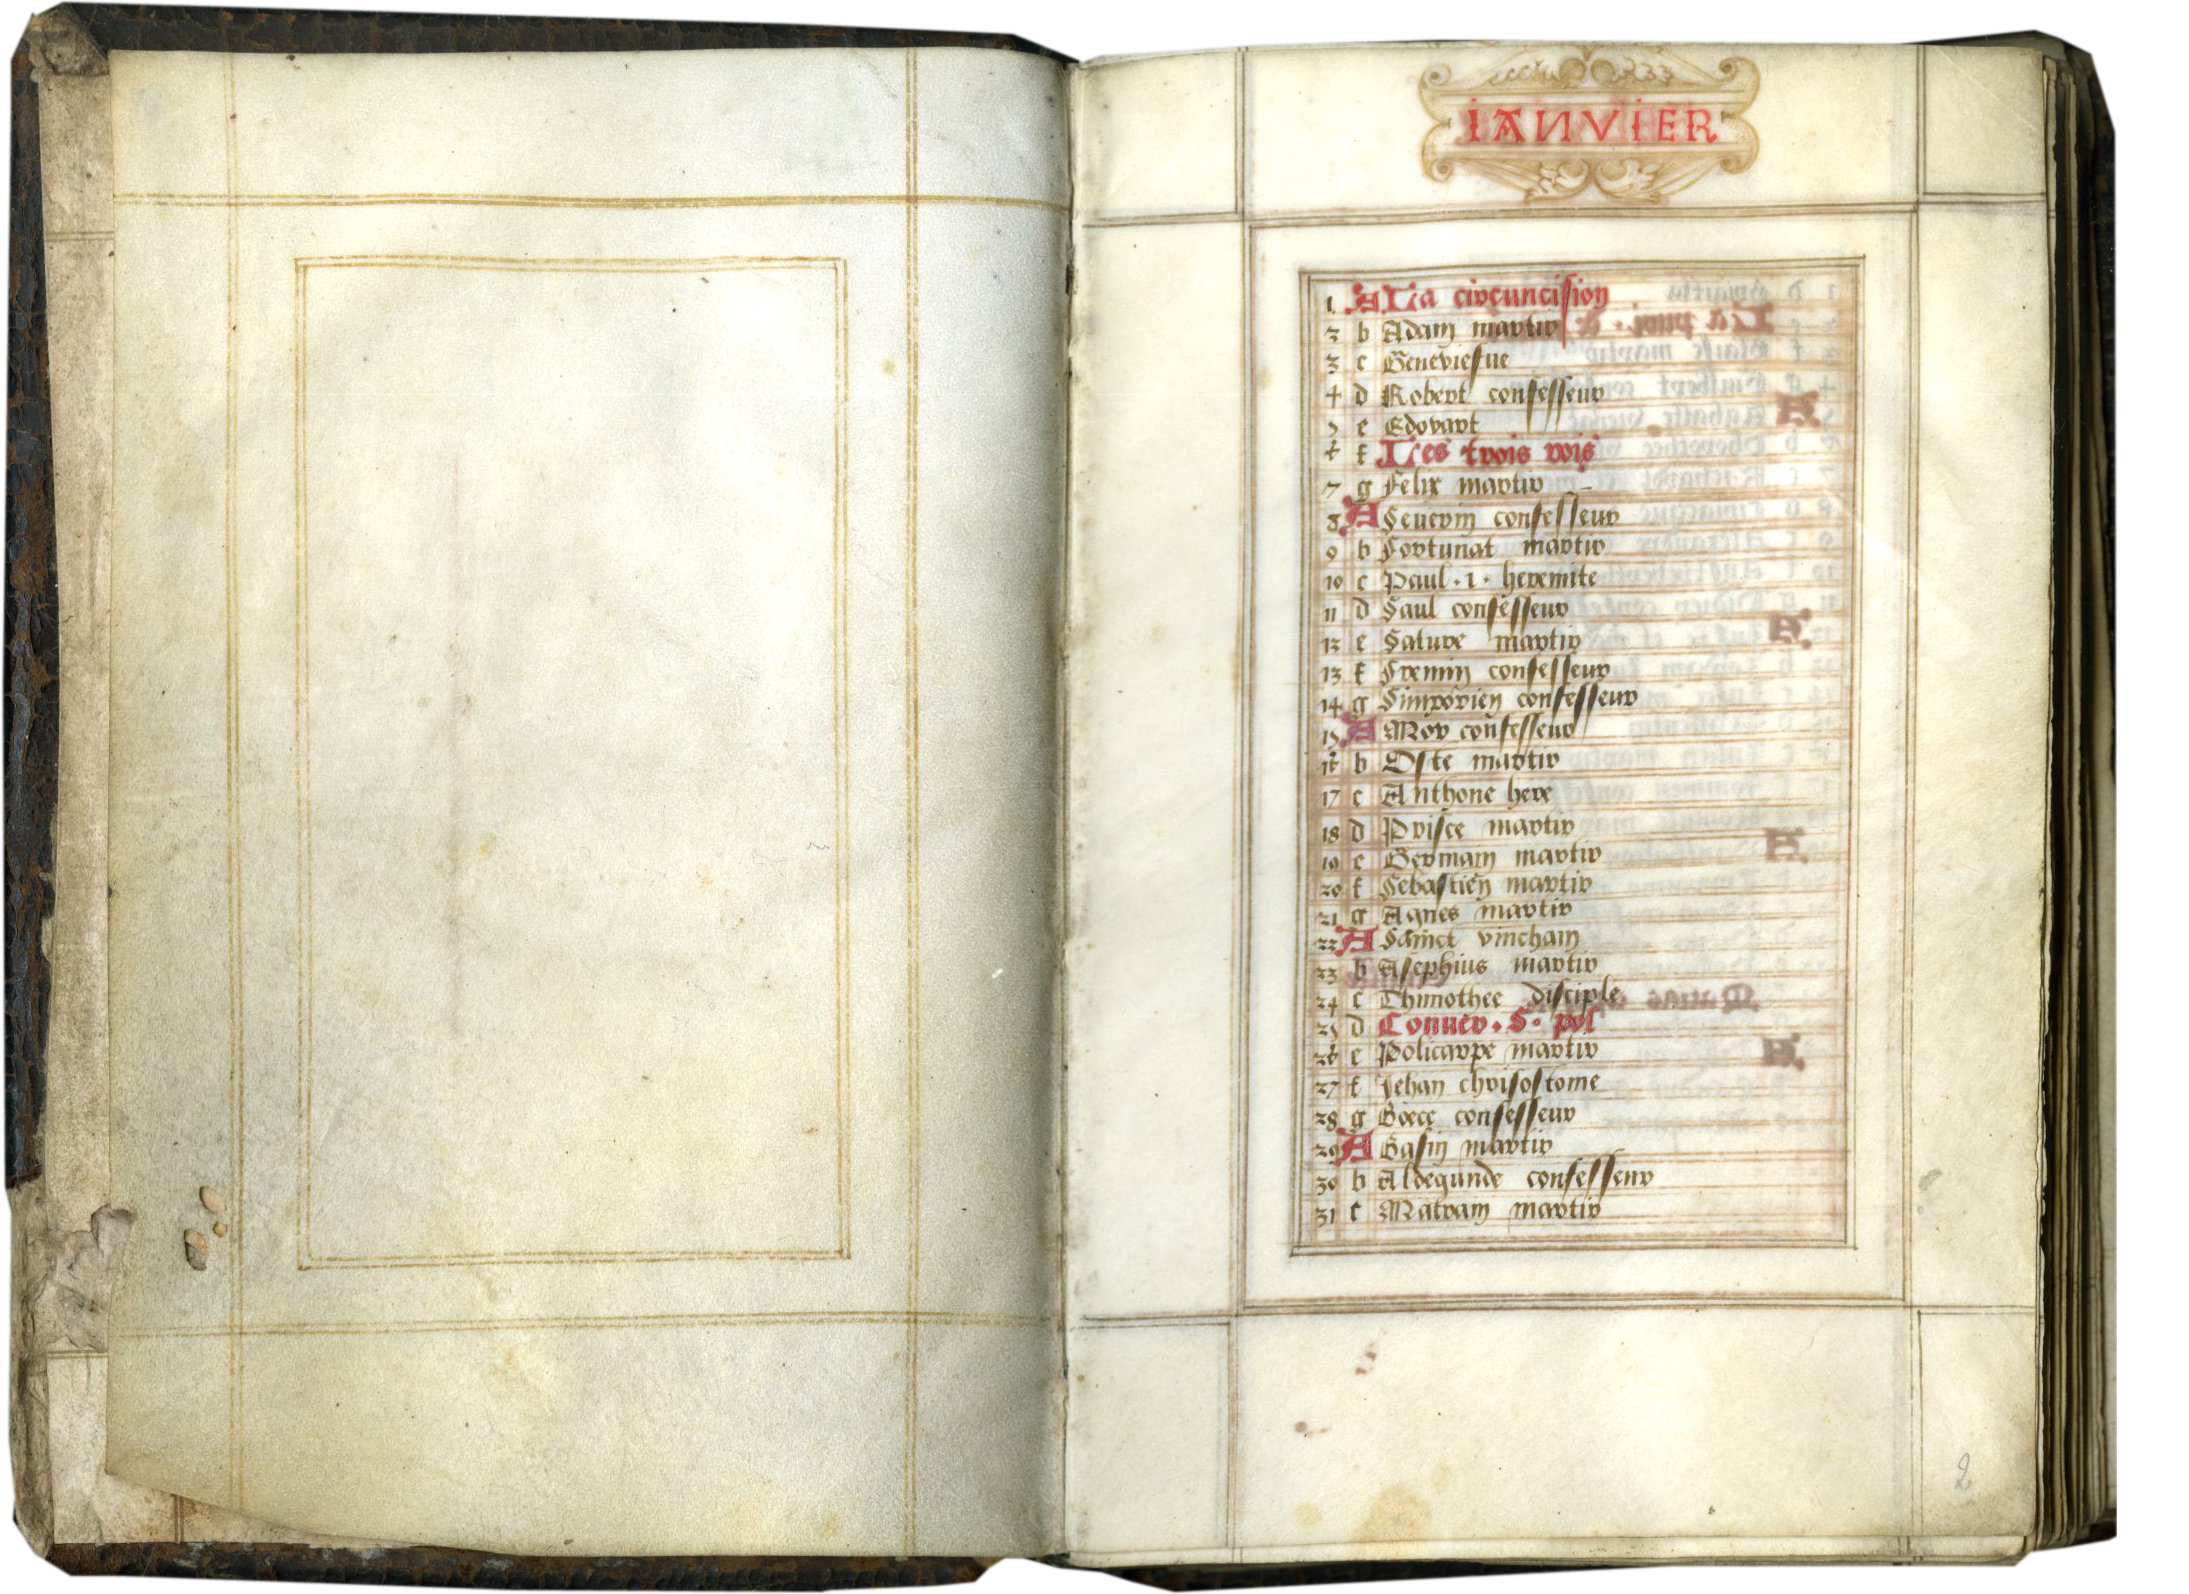 IANVIER
1 A La circuncision
2 b Adam martir
3 c Geneviesue
4 d Robert confesseur
5 e Edovart
6 f Les trois rois
7 g Felix martir
8 A Seuerin confesseur
9 b Fortunat martir
10 c Paul · 1 · heremite
11 d Saul confesseur
12 e Sature martir
13 f Fremin confesseur
14 g confesseur
15 A Mor confesseur
16 b Oste martir
17 c Anthone here
18 d Prisce martir
19 e Germain martir
20 f Sebastien martir
21 g Agnes martir
22 A Sainct vinchain
23 b Asephius martir
24 c Thimothee disciple
25 d Conuer · S · pol
26 e Policarpe martir
27 f Jehan chrisostome
28 g Boece confesseur
29 A Basin martir
30 b Aldegunde confesseur
31 c Matrain martir
2